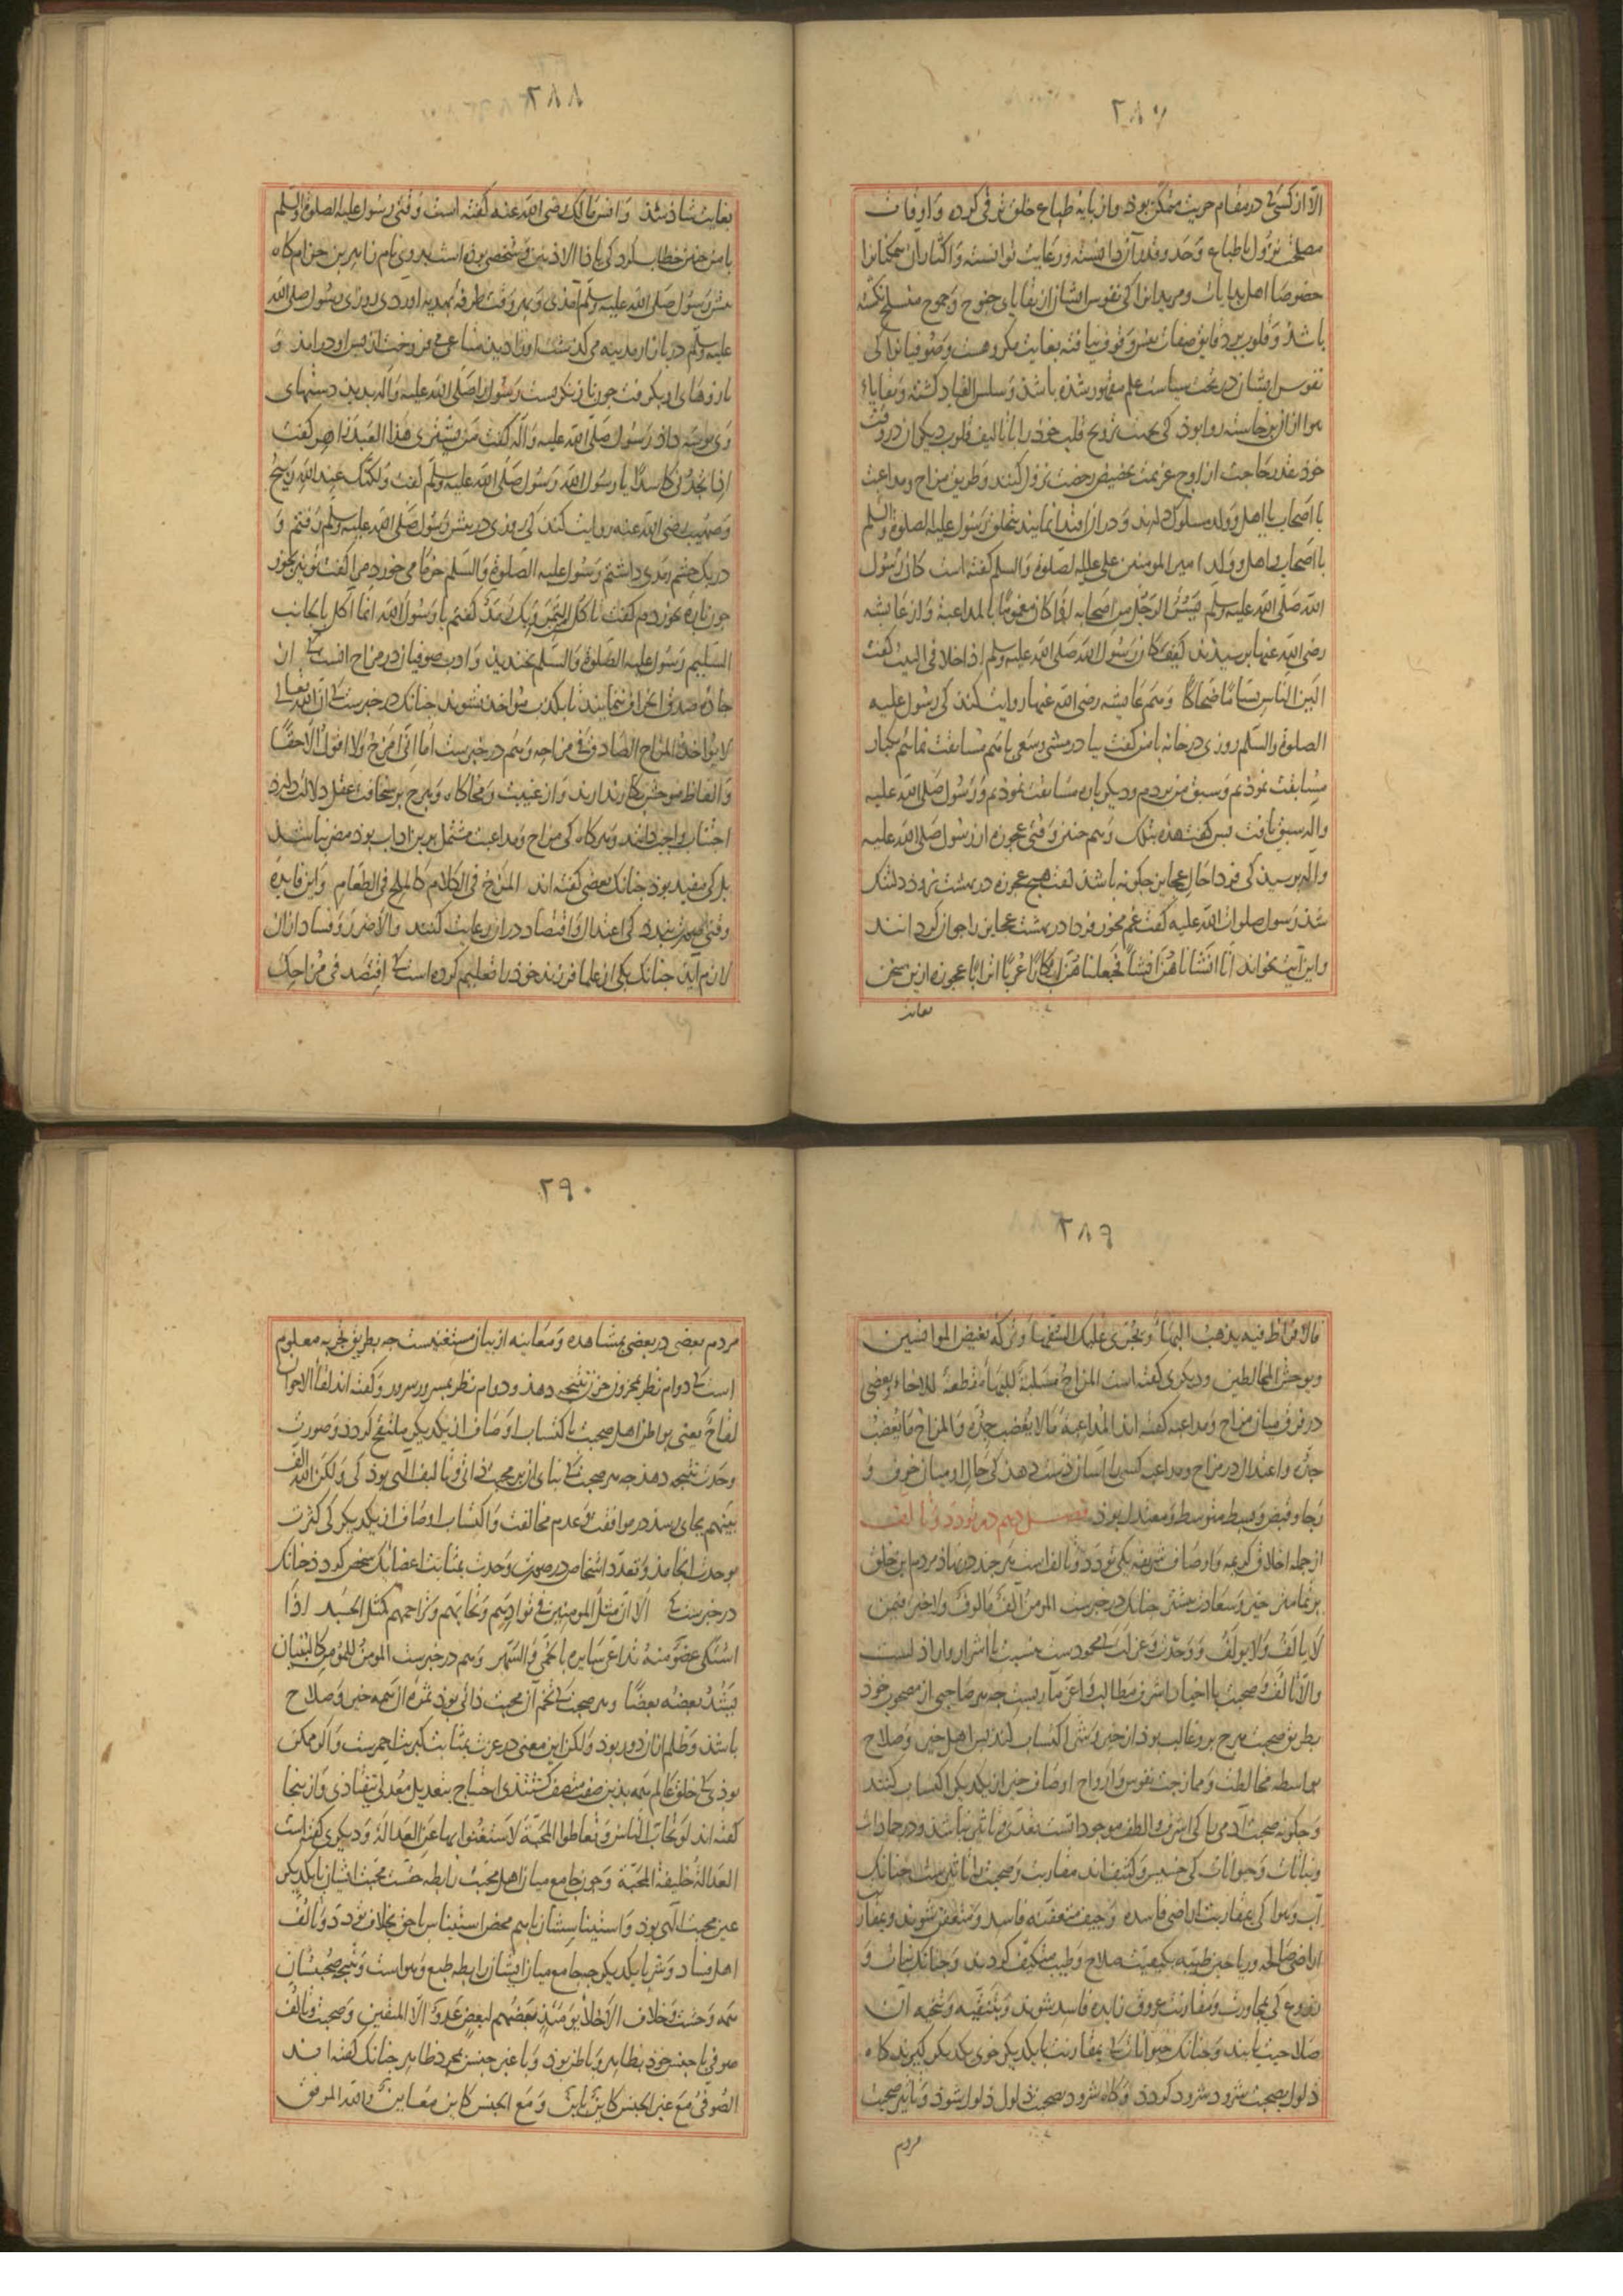 ٢٨٧
الا از کسی که در مقام حریت متمکن بود و از پایه طباع خلق ترقی کرده و اوقات
مصلحت نزول با طباع و حد و قدر آن دانسته و رعایت توانسته و اکثار آن همکنانرا
خصوصا اهل بدایات و مریدانرا کی نفوس ایشان از بقایای جنوح و جموح منسلخ نکشته
باشد و قلوب بر دقایق صفات نفس وقوف نیافته بغایت مکروهست و صوفیانرا کی
نفوس ایشان در تحت سیاست علم مقهور شده باشد و سلس القیاد کشته و بقایاء
هوا از ان برخاسته روا بود کی بجهت ترویح قلب خود را با تالیف قلوب دیکران در وقت
خود بقدر حاجت از اوج عزیمت بحضیض رخصت نزول کنند و طریق مزاح و مداعبت
با اصحاب یا اهل و ولد مسلوک دارند و در ان اقتدا نمایند بتخلق رسول علیه الصلوة والسلم
با اصحاب و اهل و ولد امیر المومنین علی علیه الصلوة والسلم کفته است کان رسول
الله صلی الله علیه وسلم لیسر الرجل من اصحابه اذا کان مغموما بالمداعبة و از عایشه
رضی الله عنها پرسیدند کیف کان رسول الله صلی الله علیه وسلم اذا خلا فی البیت کفت
الین الناس بساما ضحاکا و هم عایشه رضی الله عنها روایت کند کی رسول علیه
الصلوة والسلم روزی در خانه با من کفت بیا در مشی و سعی با هم مسابقت نمائیم یکبار
مسابقت نمودیم و سبق من بردم و دیکر باره مسابقت نمودیم و رسول صلی الله علیه
واله سبق یافت پس کفت هذه بتلک و هم چنین وقتی عجوزه از رسول صلی الله علیه
واله پرسید کی فردا حال عجایز چکونه باشد کفت هیچ عجوزه در بهشت نرود دلتنک
شد رسول صلوات الله علیه کفت غم مخور فردا در بهشت عجایز را جوان کردانند
و این آیت بخواند انا انشاناهن انشاء فجعلناهن ابکارا عربا اترابا عجوزه ازین سخن
بغایت
٢٨٨
بغایت شاد شد و انس مالک رضی الله عنه کفته است وقتی رسول علیه الصلوة والسلم
با من چنین خطاب کرد کی یا ذا الاذنین و شخصی بوده است بدوی نام زاهر بن حزام کاه
پیش رسول صلی الله علیه وسلم آمدی و بهر وقت طرفه بهدیه اوردی روزی رسول صلی الله
علیه وسلم در بازار مدینه می کذشت او را دید متاعی می فروخت از پس او درامد و
بازوهای او بکرفت چون باز نکریست رسول را صلی الله علیه واله بدید دستهای
وی بوسه داد رسول صلی الله علیه واله کفت من یشتری هذا العبد زاهر کفت
اذا تجدنی کاسدا یا رسول الله رسول صلی الله علیه وسلم کفت ولکنک عند الله ربیح
و صهیب رضی الله عنه روایت کند کی روزی در پیش رسول صلی الله علیه وسلم رفتم و
در یک چشم رمدی داشتم رسول علیه الصلوة والسلم خرما می خورد مرا کفت تو نیز بخور
چون پاره بخوردم کفت تاکل التمر وبک رمد کفتم یا رسول الله انما آکل بالجانب
السلیم رسول علیه الصلوة والسلم بخندید و ادب صوفیان در مزاح آنست کی از
جاده صدق انحراف ننمایند تا بکذب مواخذ نشوند چنانک در خبرست کی ان الله تعالی
لا یواخذ المزاح الصادق فی مزاحه و هم در خبرست اما انی امزح ولا اقول الا حقا
و الفاظ موحش بکار ندارند و از غیبت و محاکاه و هرچ بر سخافت عقل دلالت دارد
اجتناب واجب دانند و هرکاه کی مزاح و مداعبت مشتمل برین اداب بود مضر نباشد
بل کی مفید بود چنانک بعضی کفته اند المزح فی الکلام کالملح فی الطعام و این فایده
وقتی صورت بندد کی اعتدال و اقتصاد در ان رعایت کنند والا ضرر و فساد از ان
لازم آید چنانک یکی از علما فرزند خود را تعلیم کرده است کی اقتصد فی مزاحک
٢٨٩
فالافراط فیه یذهب البهاء و یجری علیک السفهاء و ترکه یغیض الموانسین
و یوحش المخالطین و دیکری کفته است المزاح مسلبة للبهاء مقطعة للاخاء و بعضی
در فرق میان مزاح و مداعبه کفته اند المداعبة ما لا یغضب جده والمزاح ما یغضب
جده و اعتدال در مزاح و مداعبه کسی را آسان دست دهد کی حال او میان خوف و
رجا و قبض و بسط متوسط و معتدل بود فصل دهم در تودد و تالف
از جمله اخلاق کریمه و اوصاف شریفه یکی تودد و تالف است هر چند در نهاد مردم این خلق
بر نماء خیر و سعادت بیشتر چنانک در خبرست المومن آلف مالوف ولا خیر فیمن
لا یالف ولا یولف و وحدت و عزلت کی محمودست بنسبت با اشرار و اراذلست
والا تالف و صحبت با اخیار اشرف مطالب و اعز مآربست چه هر صاحبی از مصحوب خود
بطریق صحبت هرچ برو غالب بود از خیر و شر اکتساب کند پس اهل خیر و صلاح
بواسطه مخالطت و ممازجت نفوس و ارواح اوصاف خیر از یکدیکر اکتساب کنند
و چکونه صحبت آدمی با کی اشرف و الطف موجوداتست بقدر صفا تاثیر نباشد و در جمادات
و نباتات و حیوانات کی خسیس و کثیف اند مقاربت و صحبت را تاثیرست چنانک
آب و هوا کی بمقاربت اراضی فاسده و جیف متعفنه فاسد و متعفن شوند و بمقاربت
اراضی صالحه و ریاحین طیبه بکیفیت صلاح و طیب متکیف کردند و چنانک نبات و
زروع کی بمجاورت و مقارنت عروق زایده فاسد شوند و بتنقیه و تنحیه آن
صلاحیت یابند و چنانک حیوانات کی بمقارنت با یکدیکر خوی یکدیکر کیرند کاه
ذلول بصحبت شرود شرود کردد و کاه شرود بصحبت ذلول ذلول شود و تاثیر صحبت
مردم
٢٩٠
مردم بعضی در بعضی بمشاهده و معاینه از بیان مستغنیست چه بطریق تجربه معلوم
است کی دوام نظر بمحزون حزن نتیجه دهد و دوام نظر بمسرور سرور و کفته اند لقاء الاخوان
لقاح یعنی بواطن اهل صحبت باکتساب اوصاف از یکدیکر ملتقح کردد و صورت
وحدت نتیجه دهد چه هر صحبت کی بنای ان بر محبت ذاتی و تالیف الهی بود کی ولکن الله الف
بینهم بجای رسد در موافقت و عدم مخالفت و اکتساب اوصاف از یکدیکر کی کثرت
بوحدت انجامد و تعدد اشخاص در صورت وحدت بمثابت اعضای یک شخص کردد چنانک
در خبرست کی الا ان مثل المومنین فی توادهم و تحابهم و تراحمهم کمثل الجسد اذا
اشتکی عضو منه تداعی سایره بالحمی والسهر و هم در خبرست المومن للمومن کالبنیان
یشد بعضه بعضا و هر صحبت کی تخم آن محبت ذاتی بود ثمره آن همه خیر و صلاح
باشد و ظلم ازان دور بود ولکن این معنی در عزت بمثابت کبریت احمرست و اکر ممکن
بودی کی خلق عالم همه بدین صفت متصف کشتندی احتیاج بتعدیل معدل نیفتادی و از ینجا
کفته اند لو تحاب الناس و تعاطوا المحبة لاستغنوا بها عن العدالة و دیکری کفته است
العدالة خلیفة المحبة و چون جامع میان اهل محبت رابطه جنسیت محبت ایشان با یکدیکر
عین محبت الهی بود و استیناس ایشان با هم محض استیناس با حق بخلاف تودد و تالف
اهل فساد و شر با یکدیکر چه جامع میان ایشان رابطه طبع و هواست و نتیجه صحبتشان
همه وحشت و خلاف الاخلاء یومئذ بعضهم لبعض عدو الا المتقین و صحبت و تالف
صوفی با جنس خود بظاهر و باطن بود و با غیر جنس بمجرد ظاهر چنانک کفته اند
الصوفی مع غیر الجنس کاین باین و مع الجنس کاین معاین والله الموفق